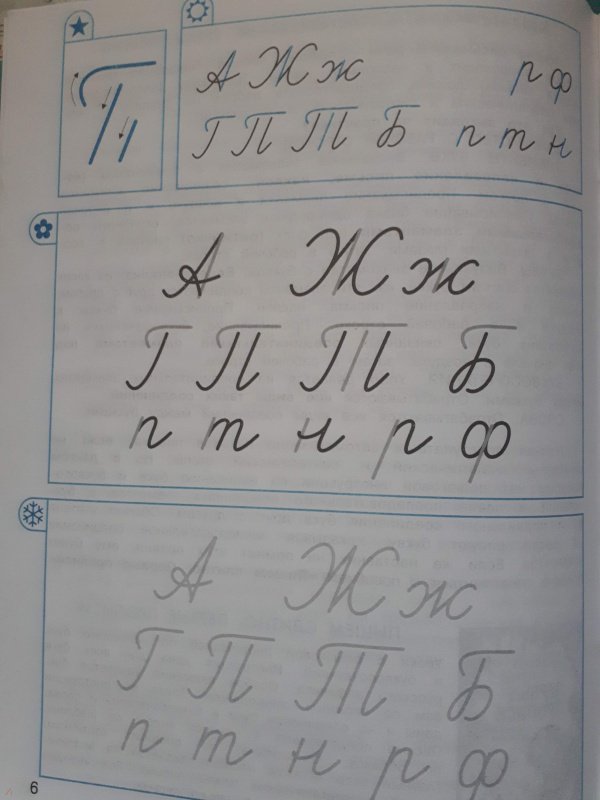 А Ж ж р ф
Г П Т Б п т н
А Ж ж
Г П Т Б
п т н р ф
А Ж ж
Г П Т Б
п т н р ф
6